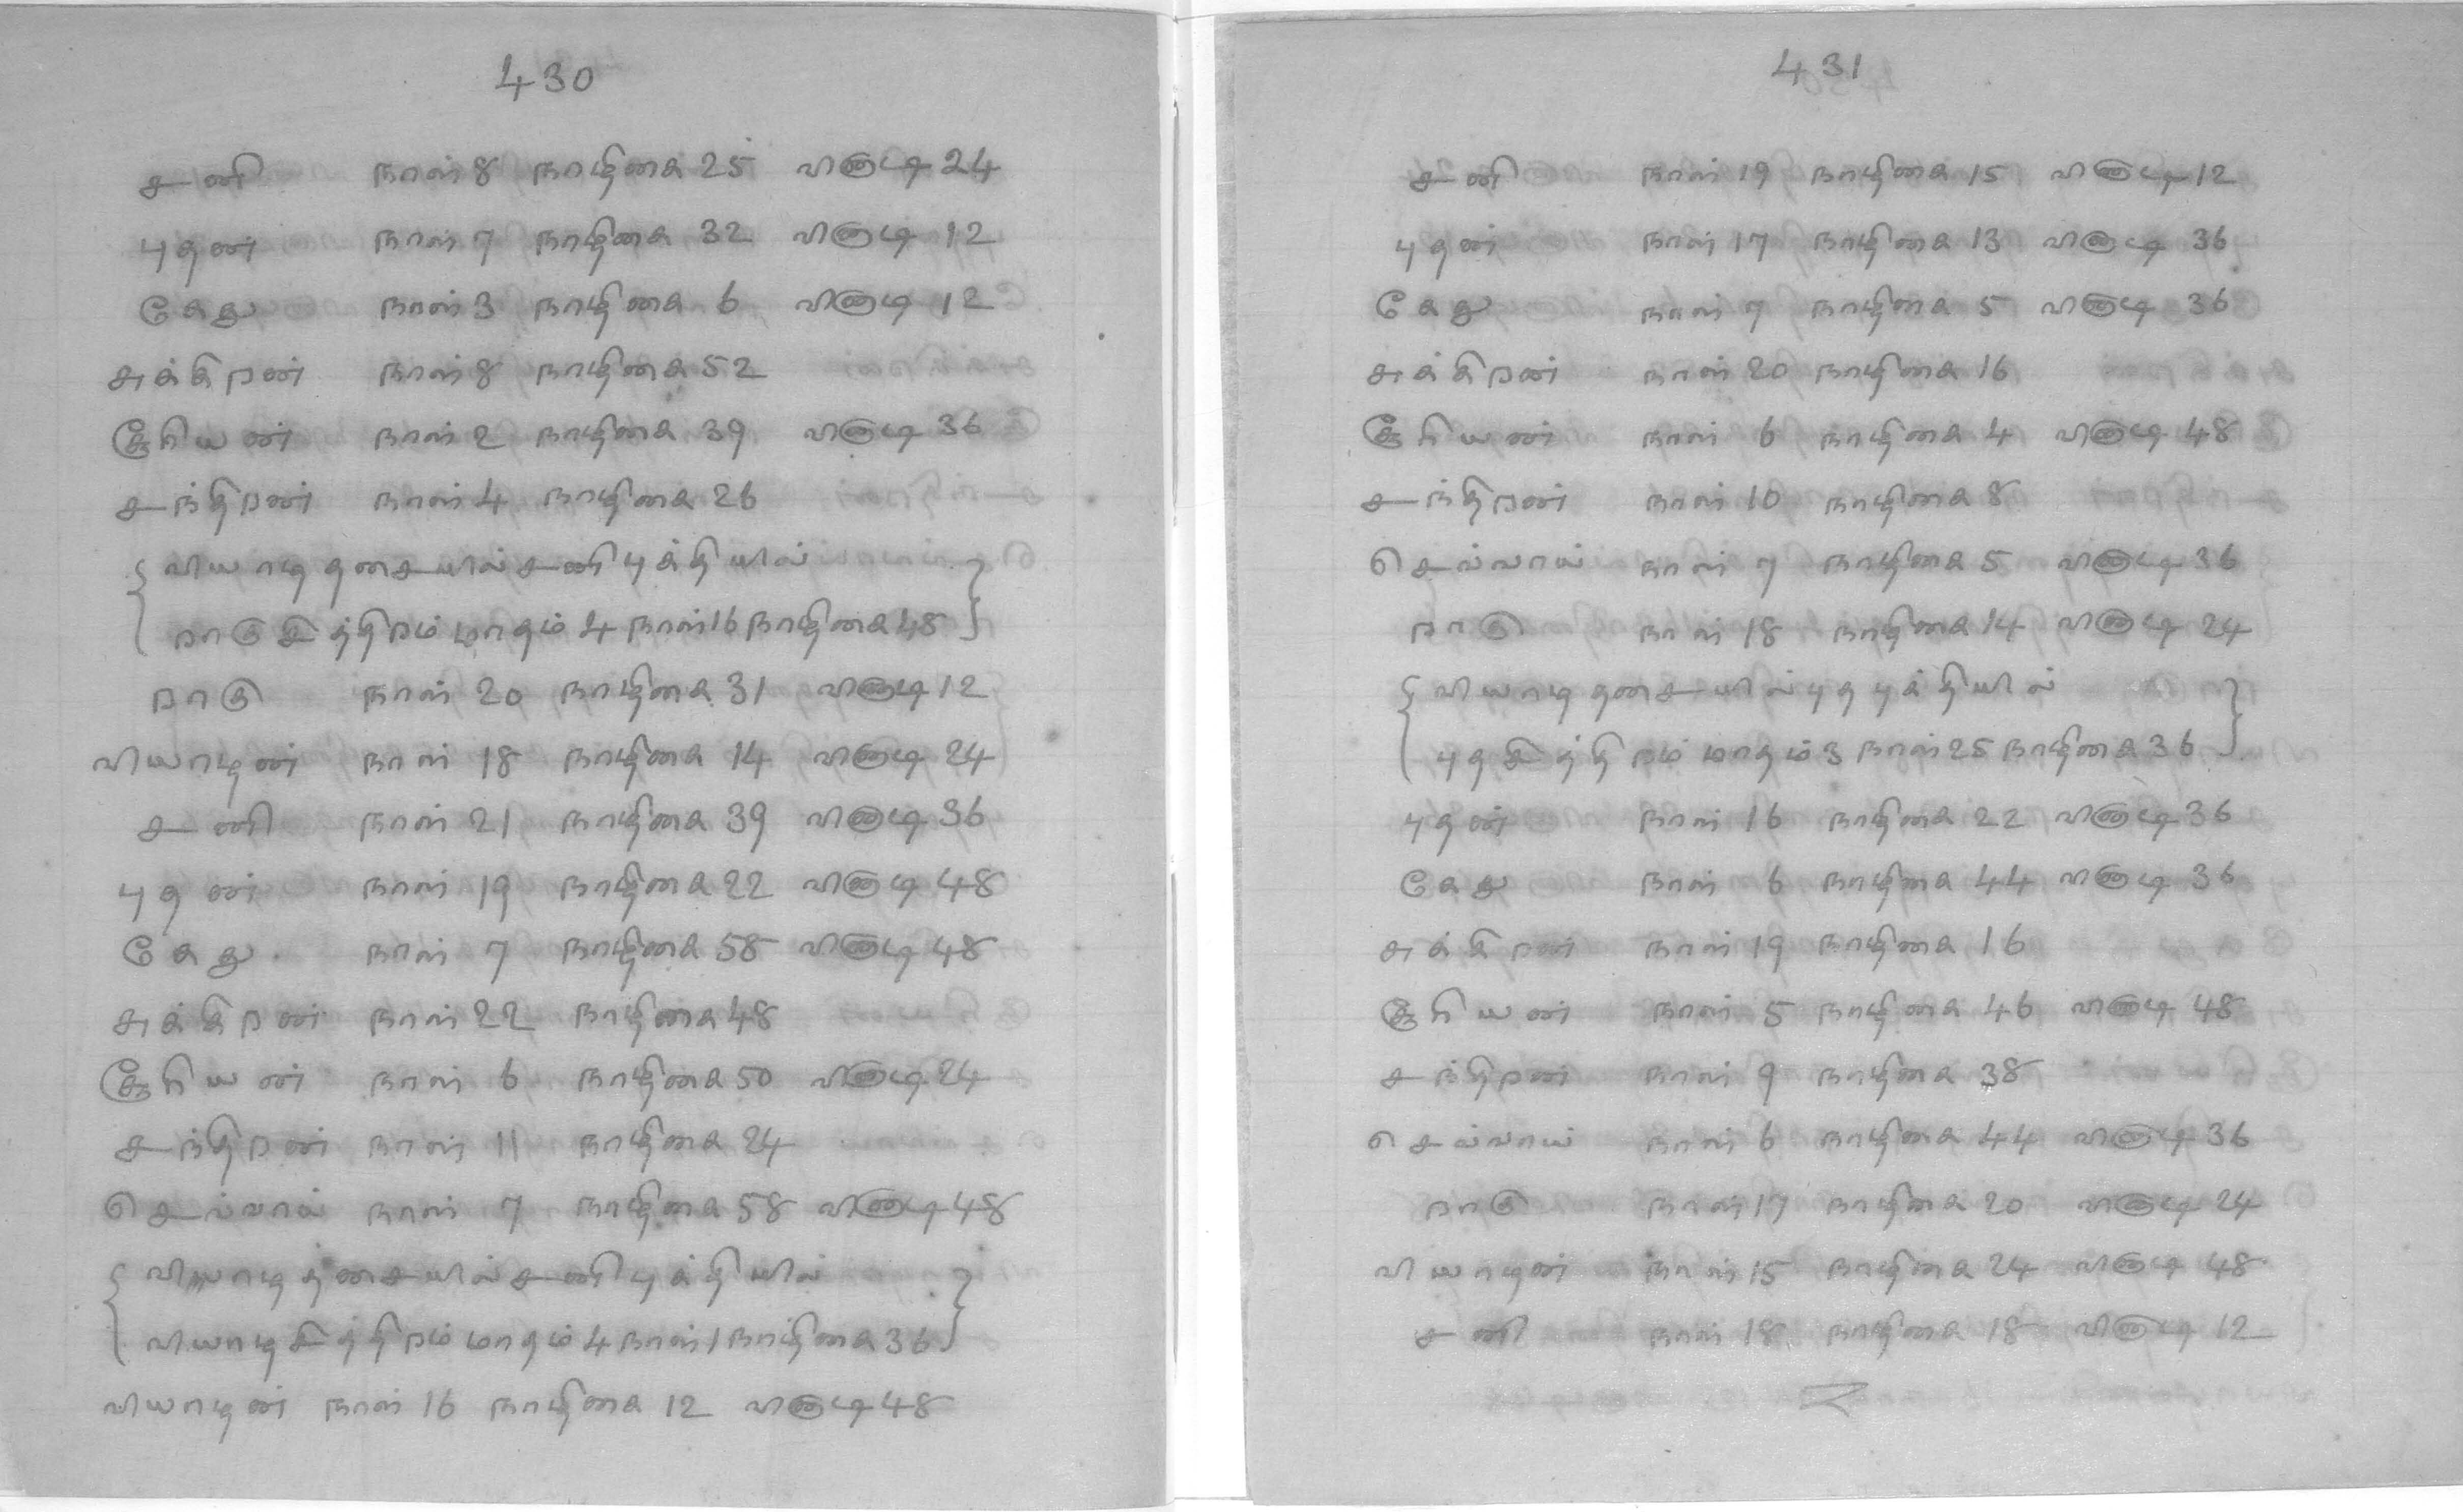 430
சனி நாள் 8 நாழிகை 25 விநாடி 24
புதன் நாள் 7 நாழிகை 32 விநாடி 12
கேது நாள் 3 நாழிகை 6 விநாடி 12
சுக்கிறன் நாள் 8 நாழிகை 52
சூரியன் நாள் 2 நாழிகை 39 விநாடி 36
சந்திறன் நாள் 4 நாழிகை 26
வியாழ தசையில் சனி புக்தியில்
றாகு சித்திறம் மாதம் 4 நாள் 16 நாழிகை 48
றாகு நாள் 20 நாழிகை 31 விநாடி 12
வியாழன் நாள் 18 நாழிகை 14 விநாடி 24
சனி நாள் 21 நாழிகை 39 விநாடி 36
புதன் நாள் 19 நாழிகை 22 விநாடி 48
கேது நாள் 7 நாழிகை 58 விநாடி 48
சுக்கிறன் நாள் 22 நாழிகை 48
சூரியன் நாள் 6 நாழிகை 50 விநாடி 24
சந்திறன் நாள் 11 நாழிகை 24
செவ்வாய் நாள் 7 நாழிகை 58 விநாடி 48
வியாழ தசையில் சனி புக்தியில்
வியாழ சித்திறம் மாதம் 4 நாள் 1 நாழிகை 36
வியாழன் நாள் 16 நாழிகை 12 விநாடி 48
431
சனி நாள் 19 நாழிகை 15 விநாடி 12
புதன் நாள் 17 நாழிகை 13 விநாடி 36
கேது நாள் 7 நாழிகை 5 விநாடி 36
சுக்கிறன் நாள் 20 நாழிகை 16
சூரியன் நாள் 6 நாழிகை 4 விநாடி 48
சந்திறன் நாள் 10 நாழிகை 8
செவ்வாய் நாள் 7 நாழிகை 5 விநாடி 36
றாகு நாள் 18 நாழிகை 14 விநாடி 24
வியாழ தசையில் புத புக்தியில்
புத சித்திறம் மாதம் 3 நாள் 25 நாழிகை 36
புதன் நாள் 16 நாழிகை 22 விநாடி 36
கேது நாள் 6 நாழிகை 44 விநாடி 36
சுக்கிறன் நாள் 19 நாழிகை 16
சூரியன் நாள் 5 நாழிகை 46 விநாடி 48
சந்திறன் நாள் 9 நாழிகை 38
செவ்வாய் நாள் 6 நாழிகை 44 விநாடி 36
றாகு நாள் 17 நாழிகை 20 விநாடி 24
வியாழன் நாள் 15 நாழிகை 24 விநாடி 48
சனி நாள் 18 நாழிகை 18 விநாடி 12